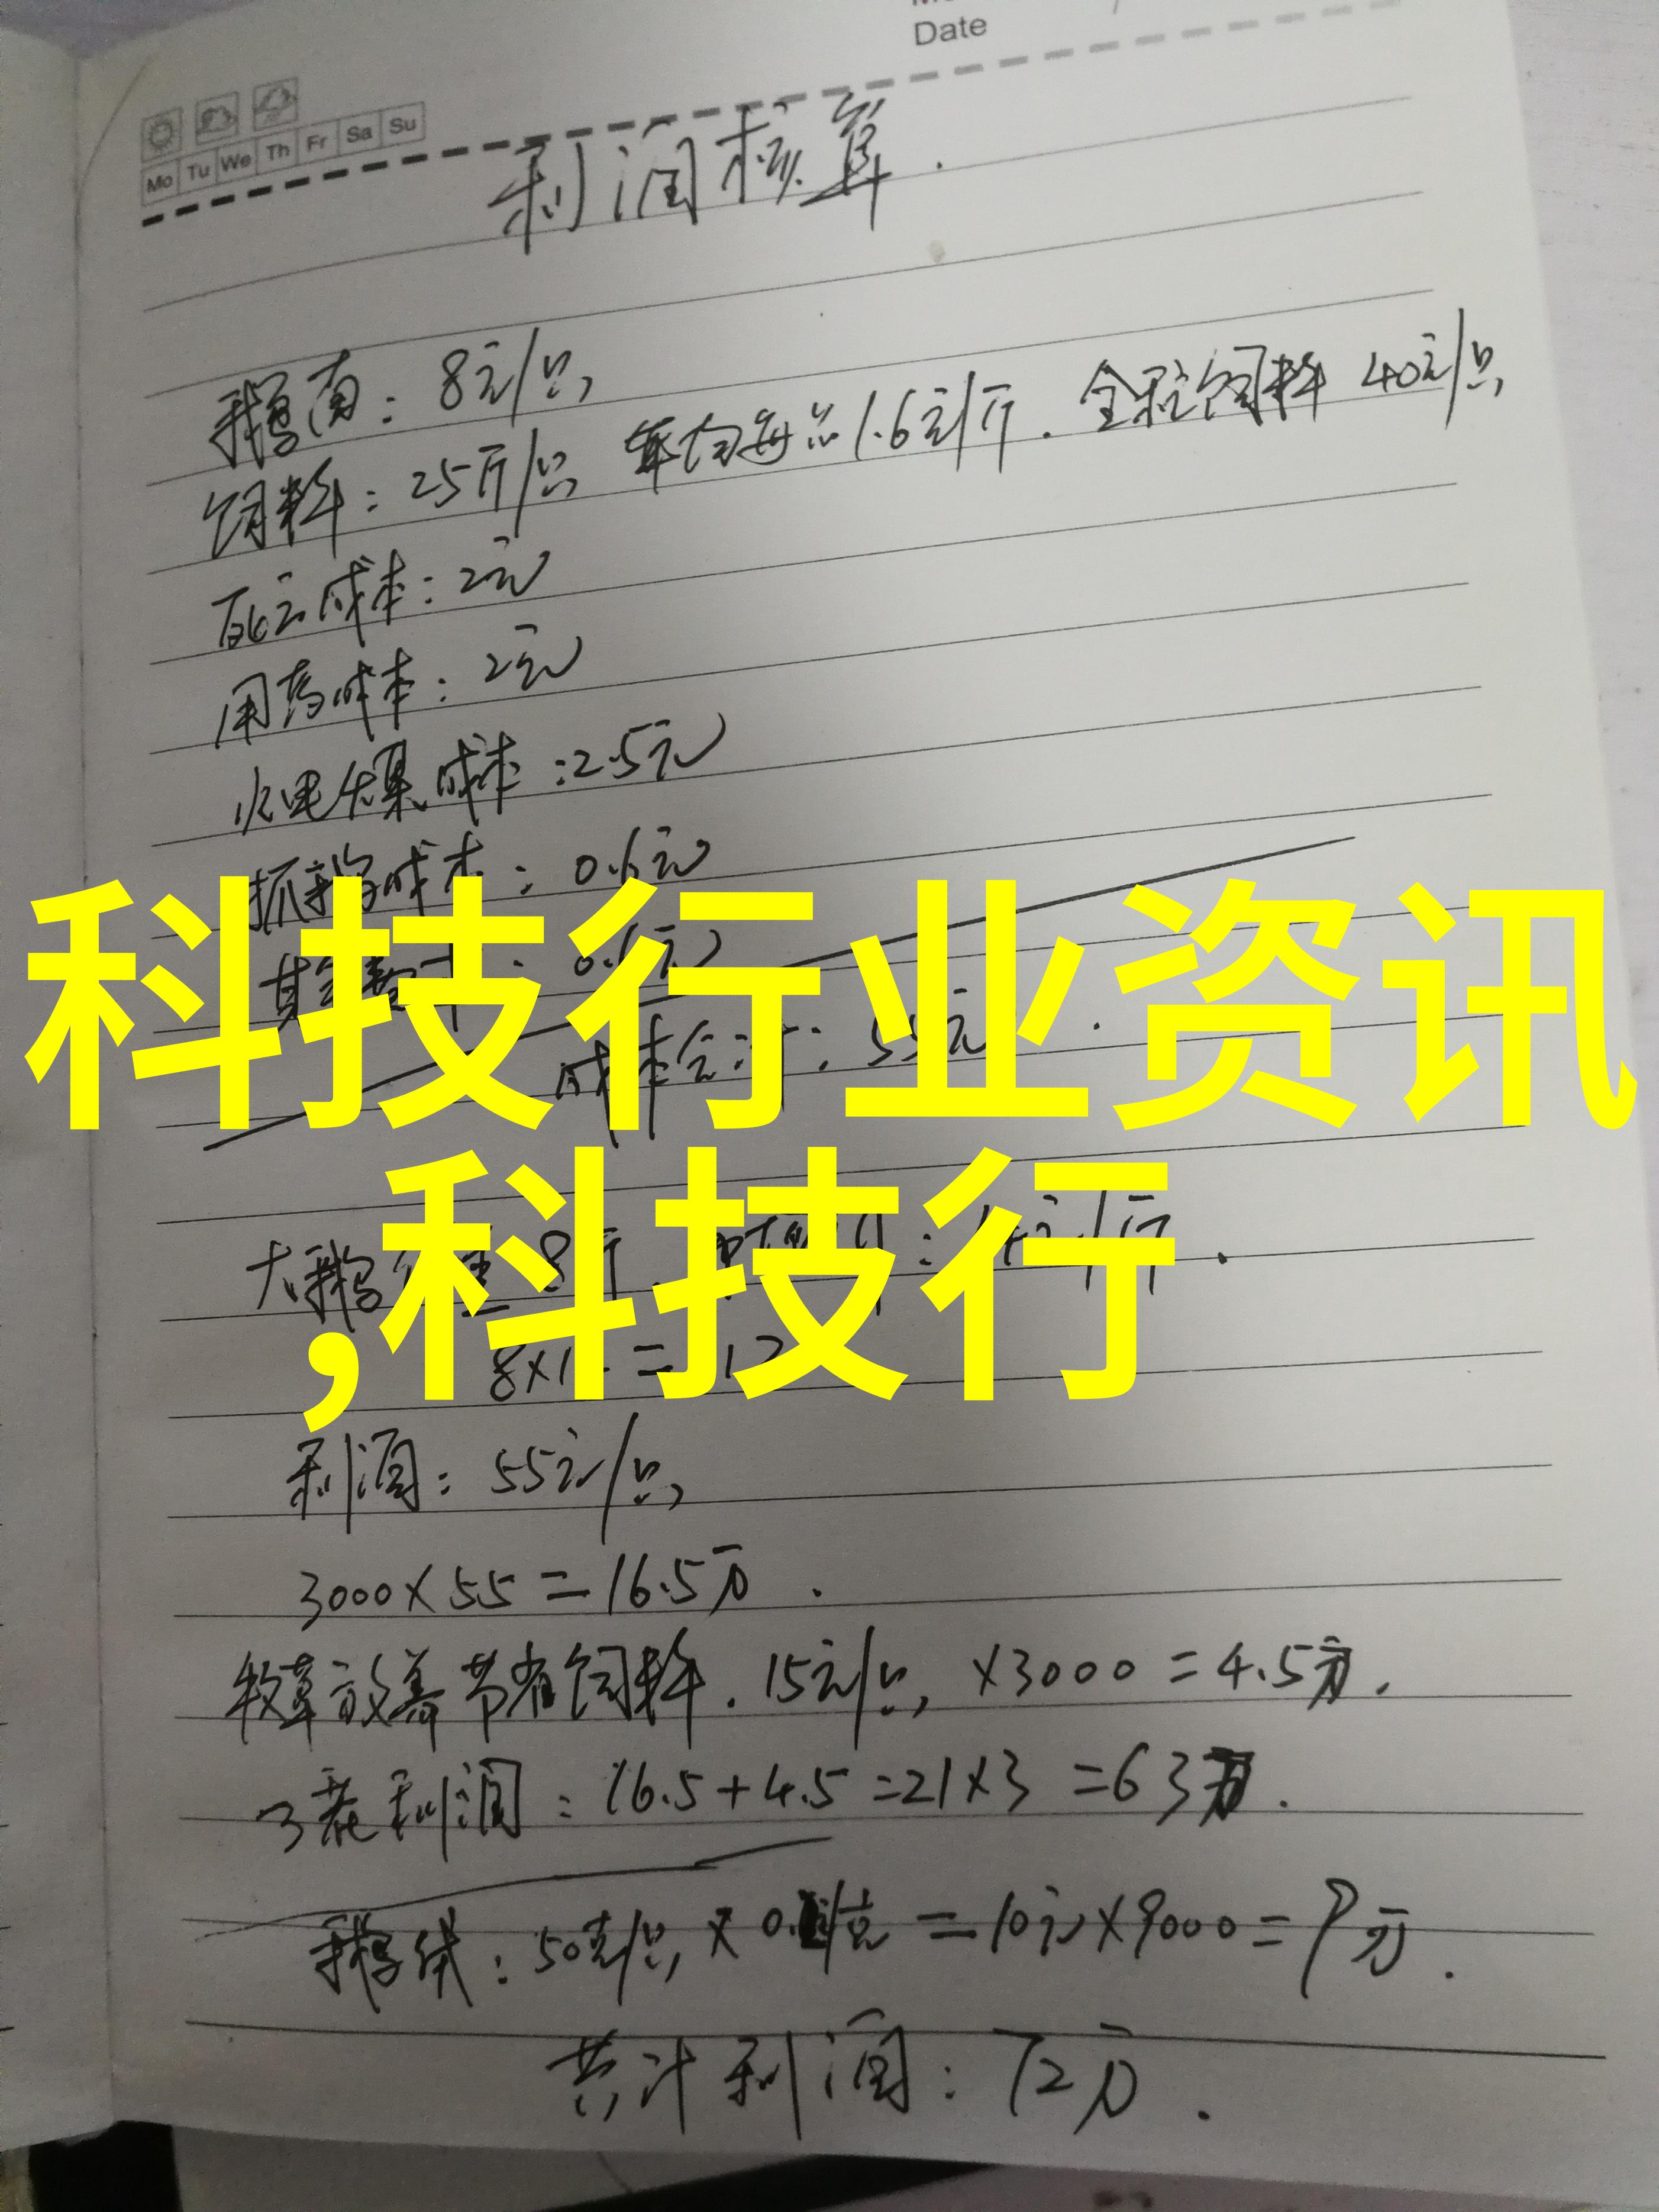 Date
Mo Tu We Th Fr Sa Su
利润核算.
鹅苗: 8元/只
饲料: 25斤/只 平均每斤1.6元/斤. 全程饲料 40元/只
死亡成本: 2元
用药成本: 2元
水电煤成本: 2.5元
抓鹅成本: 0.6元
其
成本合计: 55元.
科技行业资讯
,科技行
大鹅 8斤
8×1
利润: 55元/只
3000×55=16.5万.
牧草放养节省饲料. 15元/只 ×3000=4.5万.
3茬利润: 16.5+4.5=21×3=63万.
鹅绒: 50克/只 × =10元×9000=9万.
共计利润: 72万.